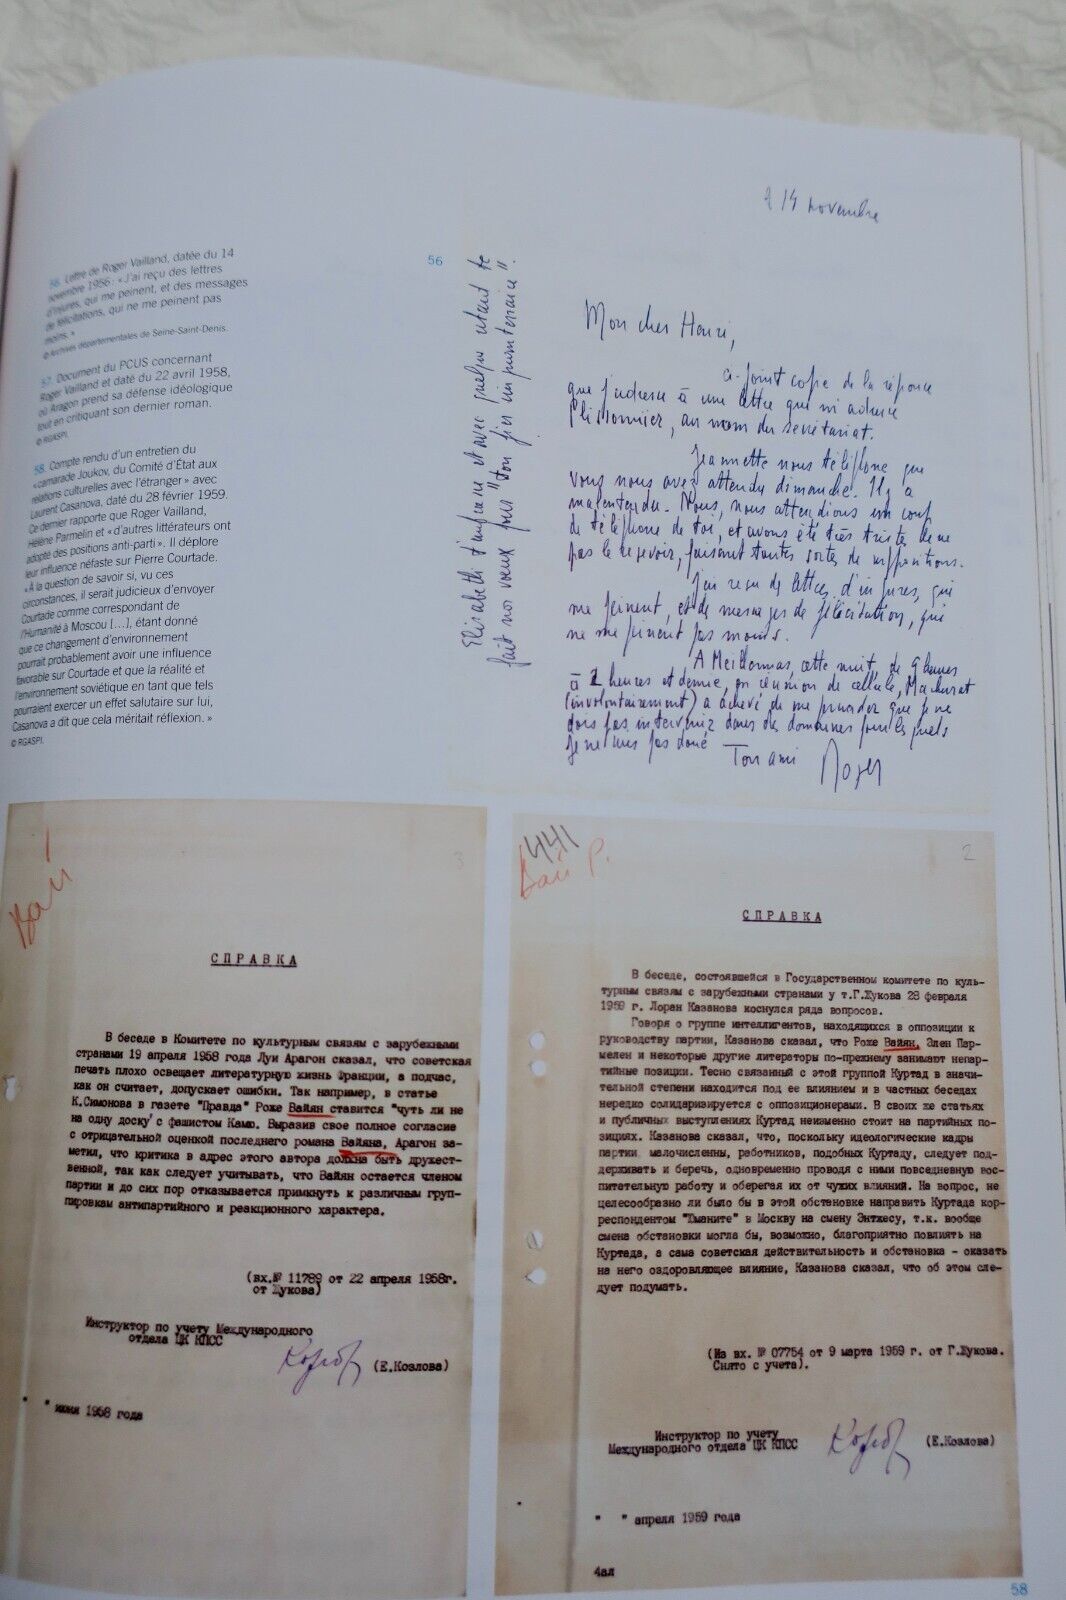 56. Lettre de Roger Vailland, datée du 14
novembre 1956 : « J'ai reçu des lettres
d'injures, qui me peinent, et des messages
de félicitations, qui ne me peinent pas
moins. »
© Archives départementales de Seine-Saint-Denis.
57. Document du PCUS concernant
Roger Vailland et daté du 22 avril 1958,
où Aragon prend sa défense idéologique
tout en critiquant son dernier roman.
© RGASPI.
58. Compte rendu d'un entretien du
« camarade Joukov, du Comité d'État aux
relations culturelles avec l'étranger » avec
Laurent Casanova, daté du 28 février 1959.
Ce dernier rapporte que Roger Vailland,
Hélène Parmelin et « d'autres littérateurs ont
adopté des positions anti-parti ». Il déplore
leur influence néfaste sur Pierre Courtade.
« À la question de savoir si, vu ces
circonstances, il serait judicieux d'envoyer
Courtade comme correspondant de
l'Humanité à Moscou [...], étant donné
que ce changement d'environnement
pourrait probablement avoir une influence
favorable sur Courtade et que la réalité et
l'environnement soviétique en tant que tels
pourraient exercer un effet salutaire sur lui,
Casanova a dit que cela méritait réflexion. »
© RGASPI.
56
14 novembre
Mon cher Henri,
ci-joint copie de la réponse
que j'adresse à une lettre que m'adresse
Plissonnier, au nom du secrétariat.
Jeannette nous téléphone que
vous nous avez attendu dimanche. Il y a
malentendu. Nous, nous attendions un coup
de téléphone de toi, et avons été très triste de ne
pas le recevoir, faisant toutes sortes de suppositions.
J'ai reçu de lettres d'injures, qui
me peinent, et de messages de félicitation, qui
ne me peinent pas moins.
A Meillonnas, cette nuit, de 9 heures
à 2 heures et demie, en réunion de cellule,
(involontairement) a achevé de me persuader que je ne
dois pas intervenir dans des domaines pour lesquels
je ne suis pas doué
Ton ami Roger
Elisabeth t'embrasse et avec quelque retard te
fait nos vœux pour "ton fier
Вай
3
СПРАВКА
В беседе в Комитете по культурным связям с зарубежными
странами 19 апреля 1958 года Луи Арагон сказал, что советская
печать плохо освещает литературную жизнь Франции, а подчас,
как он считает, допускает ошибки. Так например, в статье
К.Симонова в газете "Правда" Роже Вайян ставится "чуть ли не
на одну доску" с фашистом Камю. Выразив свое полное согласие
с отрицательной оценкой последнего романа Вайяна, Арагон за-
метил, что критика в адрес этого автора должна быть дружест-
венной, так как следует учитывать, что Вайян остается членом
партии и до сих пор отказывается примкнуть к различным груп-
пировкам антипартийного и реакционного характера.
(вх.№ 11789 от 22 апреля 1958г.
от Жукова)
Инструктор по учету Международного
отдела ЦК КПСС
(Е.Козлова)
" " июня 1958 года
441
Вай Р.
2
СПРАВКА
В беседе, состоявшейся в Государственном комитете по куль-
турным связям с зарубежными странами у т.Г.Жукова 28 февраля
1959 г. Лоран Казанова коснулся ряда вопросов.
Говоря о группе интеллигентов, находящихся в оппозиции к
руководству партии, Казанова сказал, что Роже Вайян, Элен Пар-
мелен и некоторые другие литераторы по-прежнему занимают непар-
тийные позиции. Тесно связанный с этой группой Куртад в значи-
тельной степени находится под ее влиянием и в частных беседах
нередко солидаризируется с оппозиционерами. В своих же статьях
и публичных выступлениях Куртад неизменно стоит на партийных по-
зициях. Казанова сказал, что, поскольку идеологические кадры
партии малочисленны, работников, подобных Куртаду, следует под-
держивать и беречь, одновременно проводя с ними повседневную вос-
питательную работу и оберегая их от чужих влияний. На вопрос, не
целесообразно ли было бы в этой обстановке направить Куртада кор-
респондентом "Юманите" в Москву на смену Энтжесу, т.к. вообще
смена обстановки могла бы, возможно, благоприятно повлиять на
Куртада, а сама советская действительность и обстановка - оказать
на него оздоровляющее влияние, Казанова сказал, что об этом сле-
дует подумать.
(Из вх. № 07754 от 9 марта 1959 г. от Г.Жукова.
Снято с учета).
Инструктор по учету
Международного отдела ЦК КПСС
(Е.Козлова)
" " апреля 1959 года
4ал
58